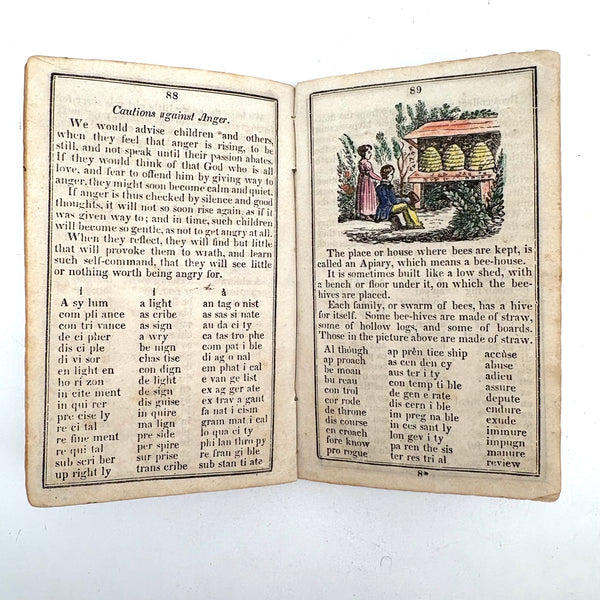 88
Cautions against Anger.
We would advise children and others,
when they feel that anger is rising, to be
still, and not speak until their passion abates.
If they would think of that God who is all
love, and fear to offend him by giving way to
anger, they might soon become calm and quiet.
If anger is thus checked by silence and good
thoughts, it will not so soon rise again, as if it
was given way to; and in time, such children
will become so gentle, as not to get angry at all.
When they reflect, they will find but little
that will provoke them to wrath, and learn
such self-command, that they will see little
or nothing worth being angry for.
A sy lum a light an tag o nist
com pli ance as cribe as sas si nate
con tri vance as sign au da ci ty
de ci pher a wry ca tas tro phe
dis ci ple be nign com pat i ble
di vi sor chas tise di ag o nal
en light en con dign em phat i cal
ho ri zon de light e van ge list
in cite ment de sign ex ag ger ate
in qui rer dis guise ex trav a gant
pre cise ly in quire fa nat i cism
re ci tal ma lign gram mat i cal
re fine ment pre side lo qua ci ty
re qui tal per spire phi lan thro py
sub scri ber sur prise re fran gi ble
up right ly trans cribe sub stan ti ate
89
The place or house where bees are kept, is
called an Apiary, which means a bee-house.
It is sometimes built like a low shed, with
a bench or floor under it, on which the bee-
hives are placed.
Each family, or swarm of bees, has a hive
for itself. Some bee-hives are made of straw,
some of hollow logs, and some of boards.
Those in the picture above are made of straw.
Al though ap prēn tice ship accùse
ap proach as cen den cy abuse
be moan aus ter i ty adieu
bu reau con temp ti ble assure
con trol de gen e rate depute
cor rode dis cern i ble endure
de throne im preg na ble exude
dis course in ces sant ly immure
en croach lon gev i ty impugn
fore know pa ren the sis manure
pro rogue ter res tri al review
8*